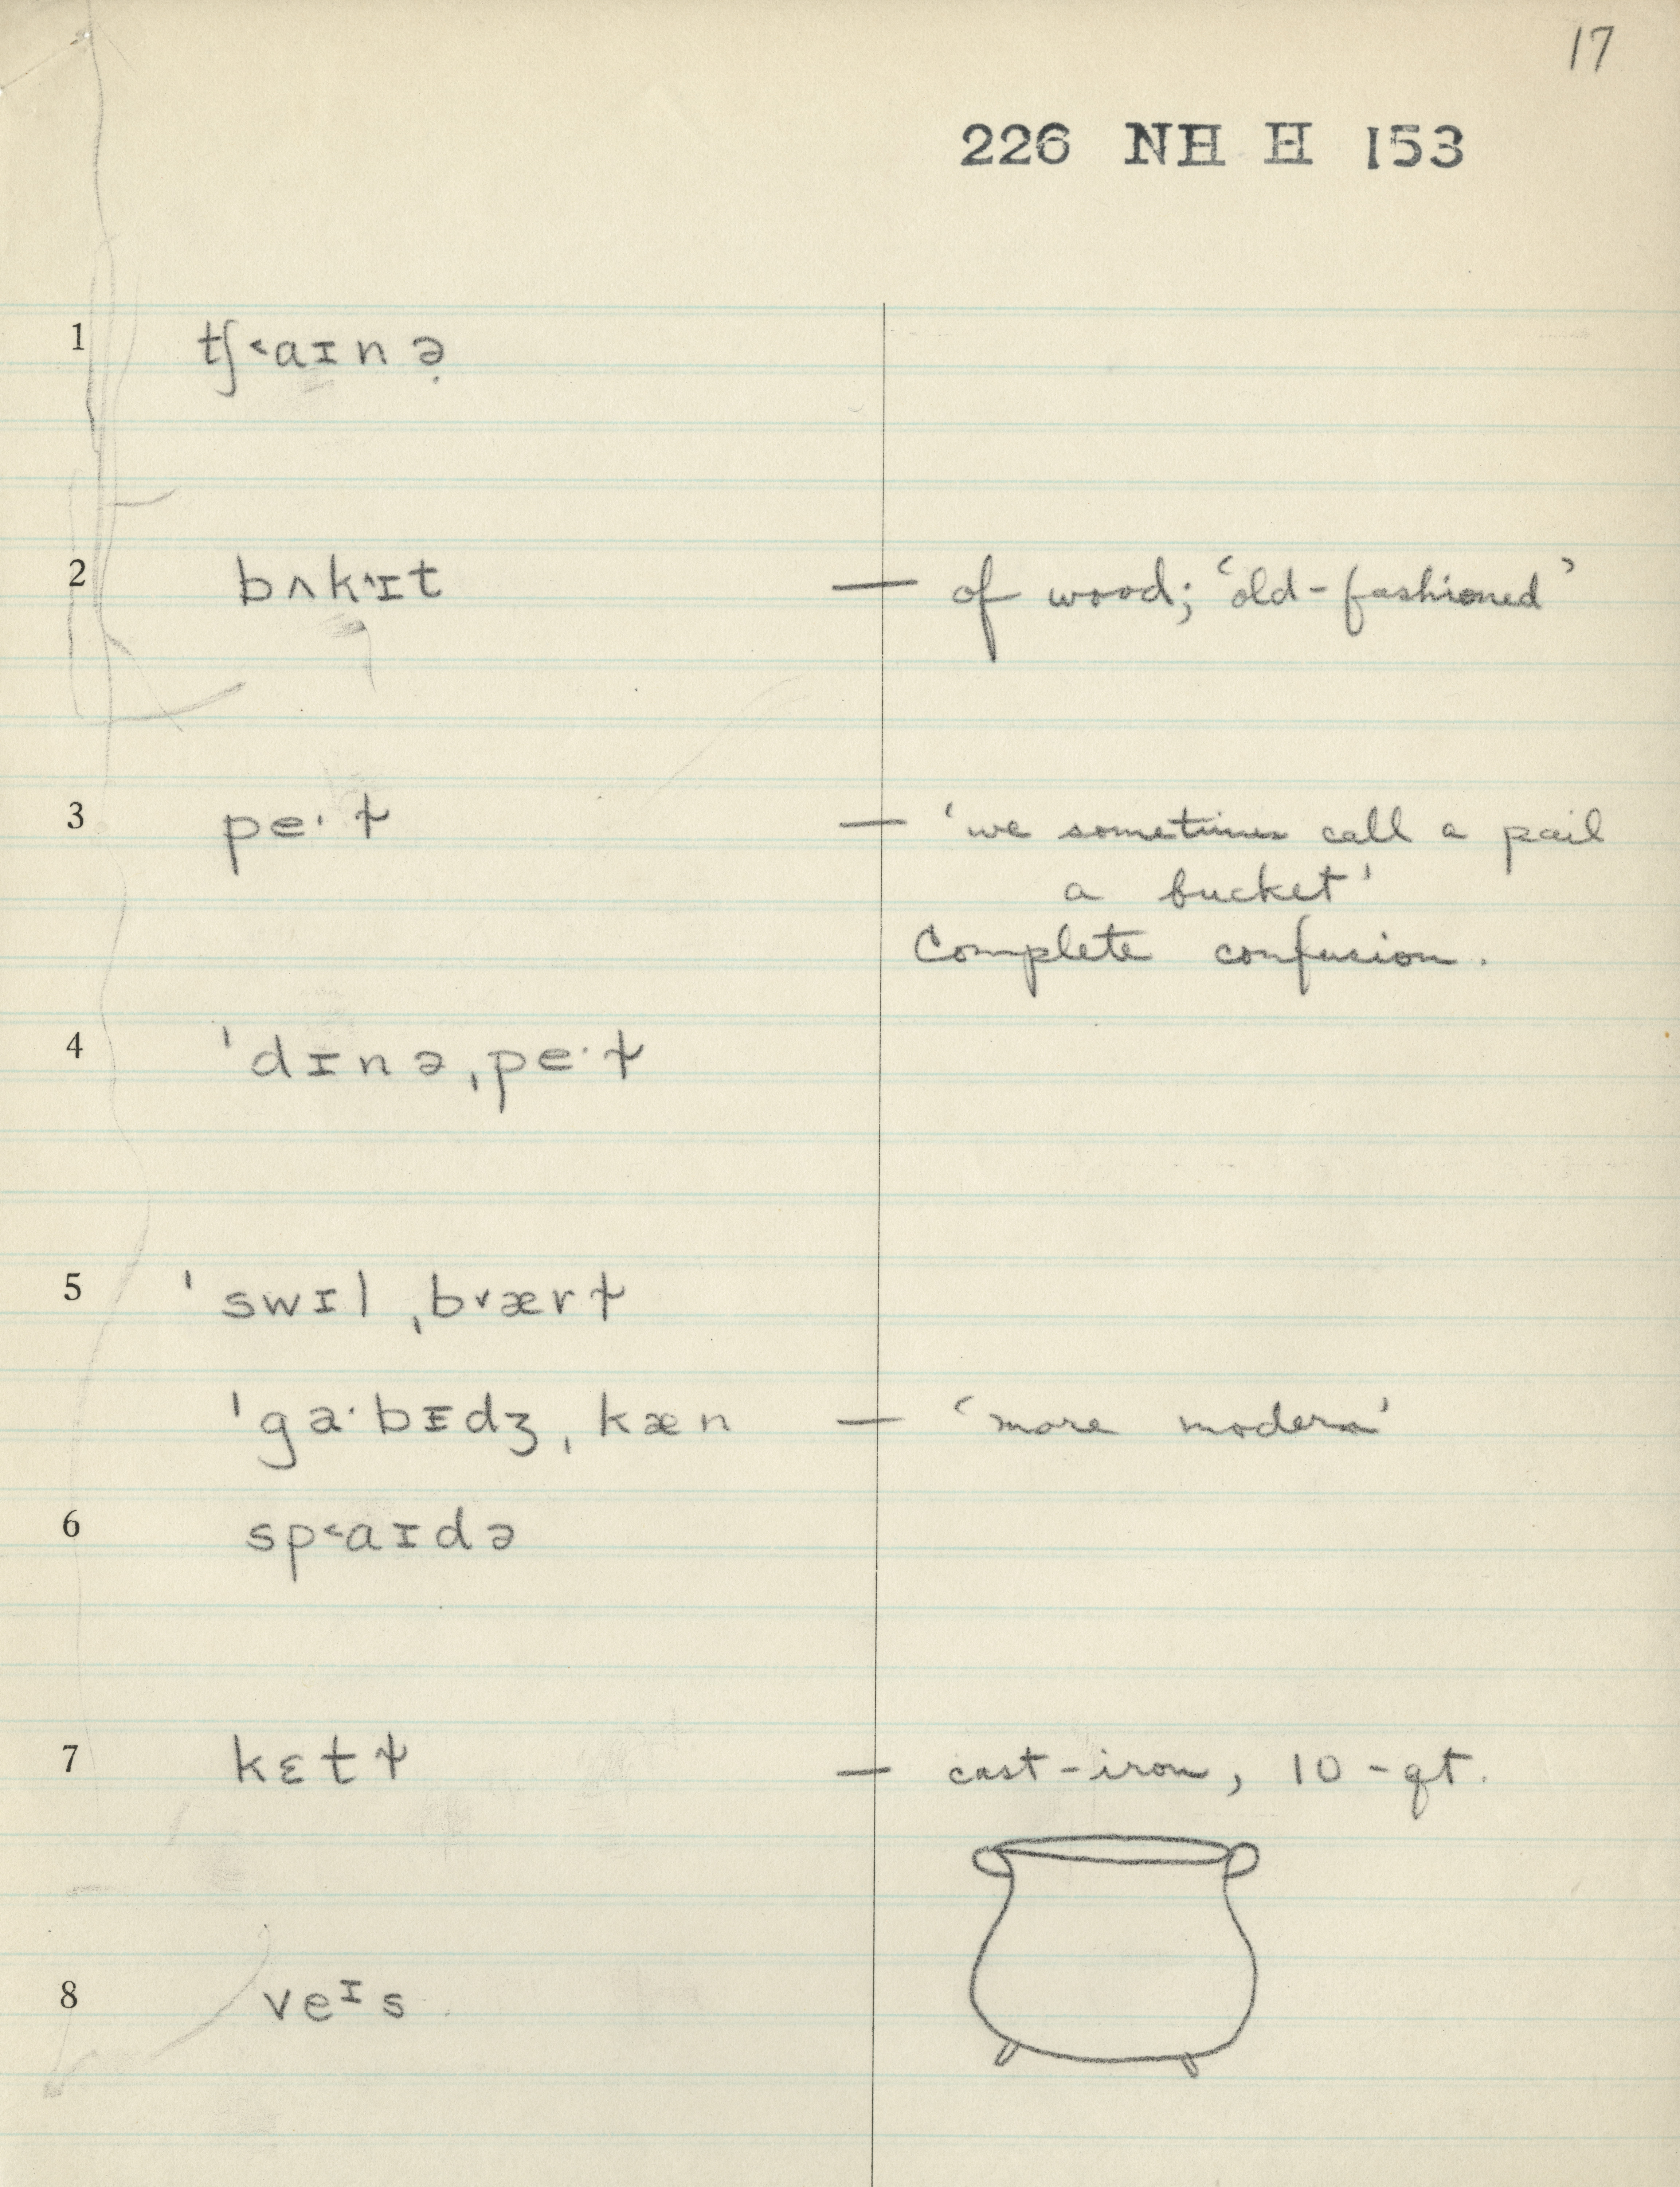 17
226 NH H 153
1 tʃ˂aɪnə̣
2 bʌk˄ɪt — of wood; 'old-fashioned'
3 peˑɫ — 'we sometimes call a pail
a bucket'
Complete confusion.
4 ˈdɪnəˌpeˑɫ
5 ˈswɪlˌb˅ærɫ
ˈgaˑbɪdʒˌkæn — 'more modern'
6 sp˂aɪdə
7 kɛtɫ̩ — cast-iron, 10-qt.
8 veᶦs